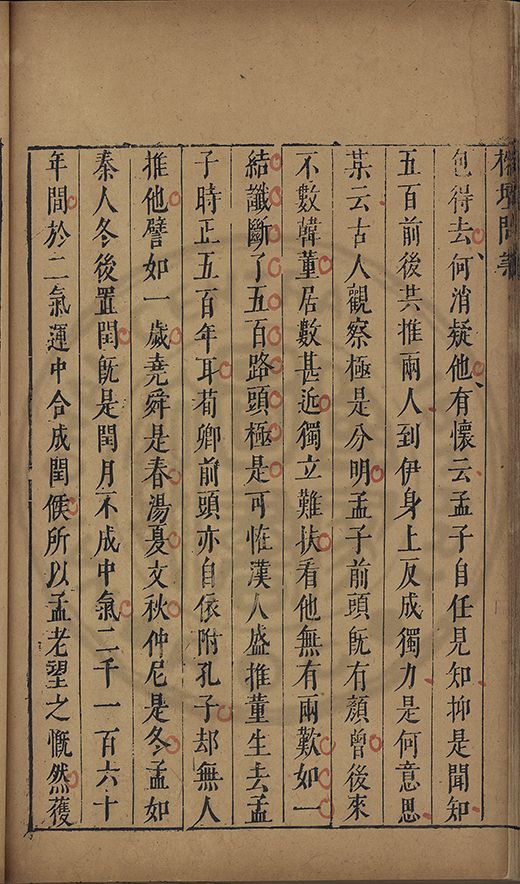 榕壇問業
包得去何消疑他有懷云孟子自任見知抑是聞知
五百前後共推兩人到伊身上反成獨力是何意思
某云古人觀察極是分明孟子前頭旣有顏曾後來
不數韓董居數甚近獨立難扶看他無有兩歎如一
結讖斷了五百路頭極是可恠漢人盛推董生去孟
子時正五百年耳荀卿前頭亦自依附孔子却無人
推他譬如一歲堯舜是春湯夏文秋仲尼是冬孟如
秦人冬後置閏旣是閏月不成中氣二千一百六十
年間於二氣運中合成閏候所以孟老望之慨然䕶